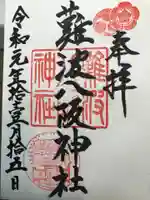 奉拝
難波八阪神社
難波
神社
令和元年拾壹月拾五日